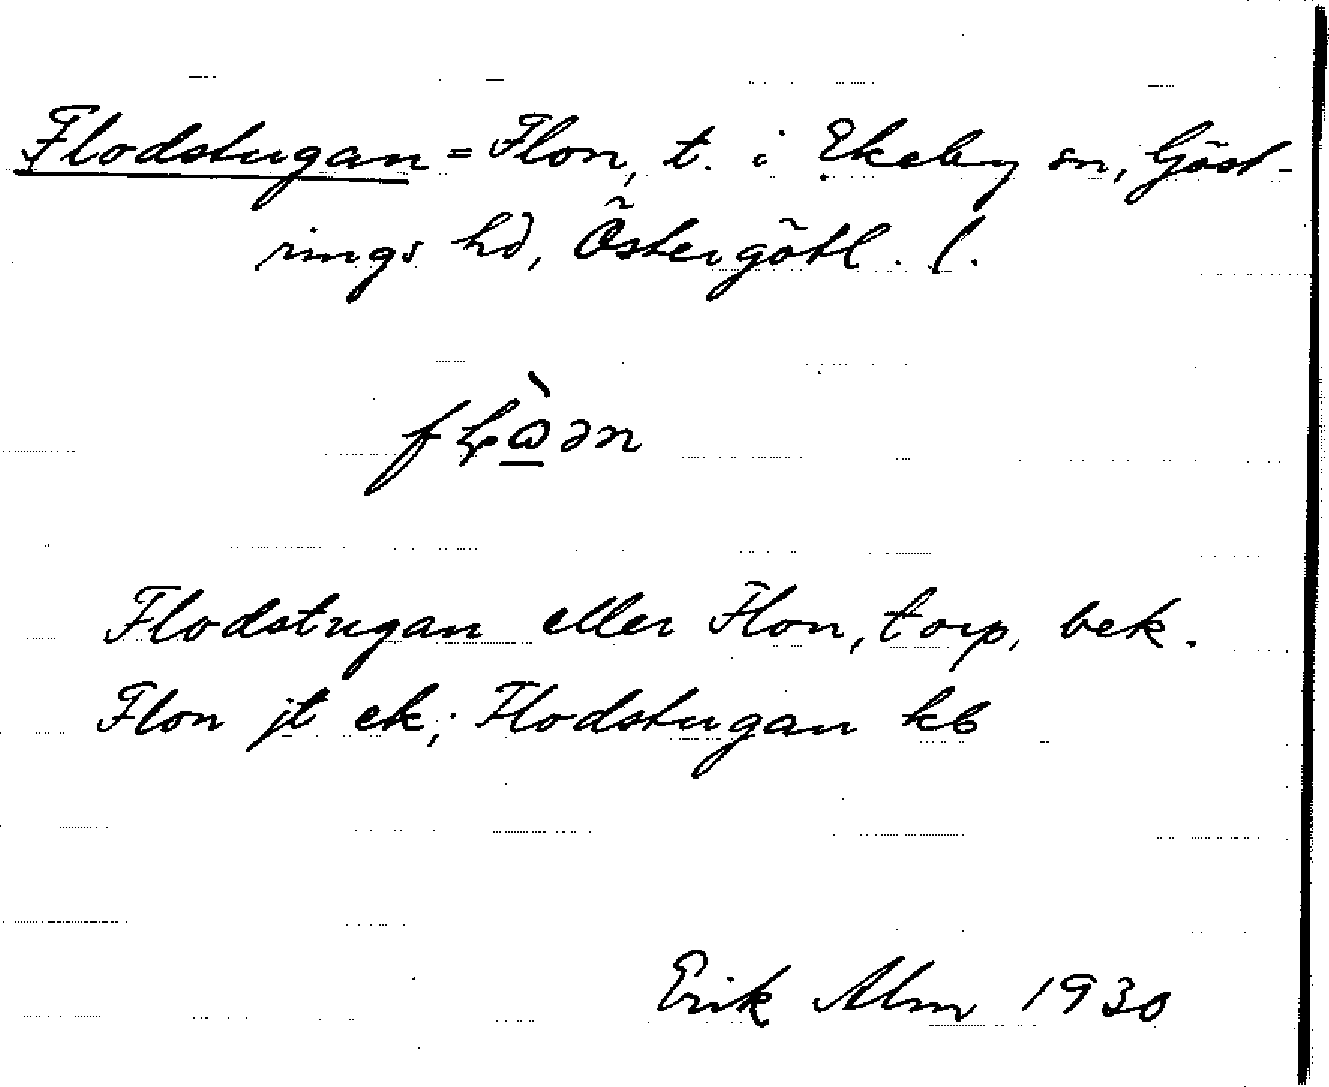 Flodstugan = Flon, t. i Ekeby sn, Göst-
rings hd, Östergötl. l.
Flodstugan eller Flon, torp, bek.
Flon jt ek; Flodstugan kb
Erik Alm 1930